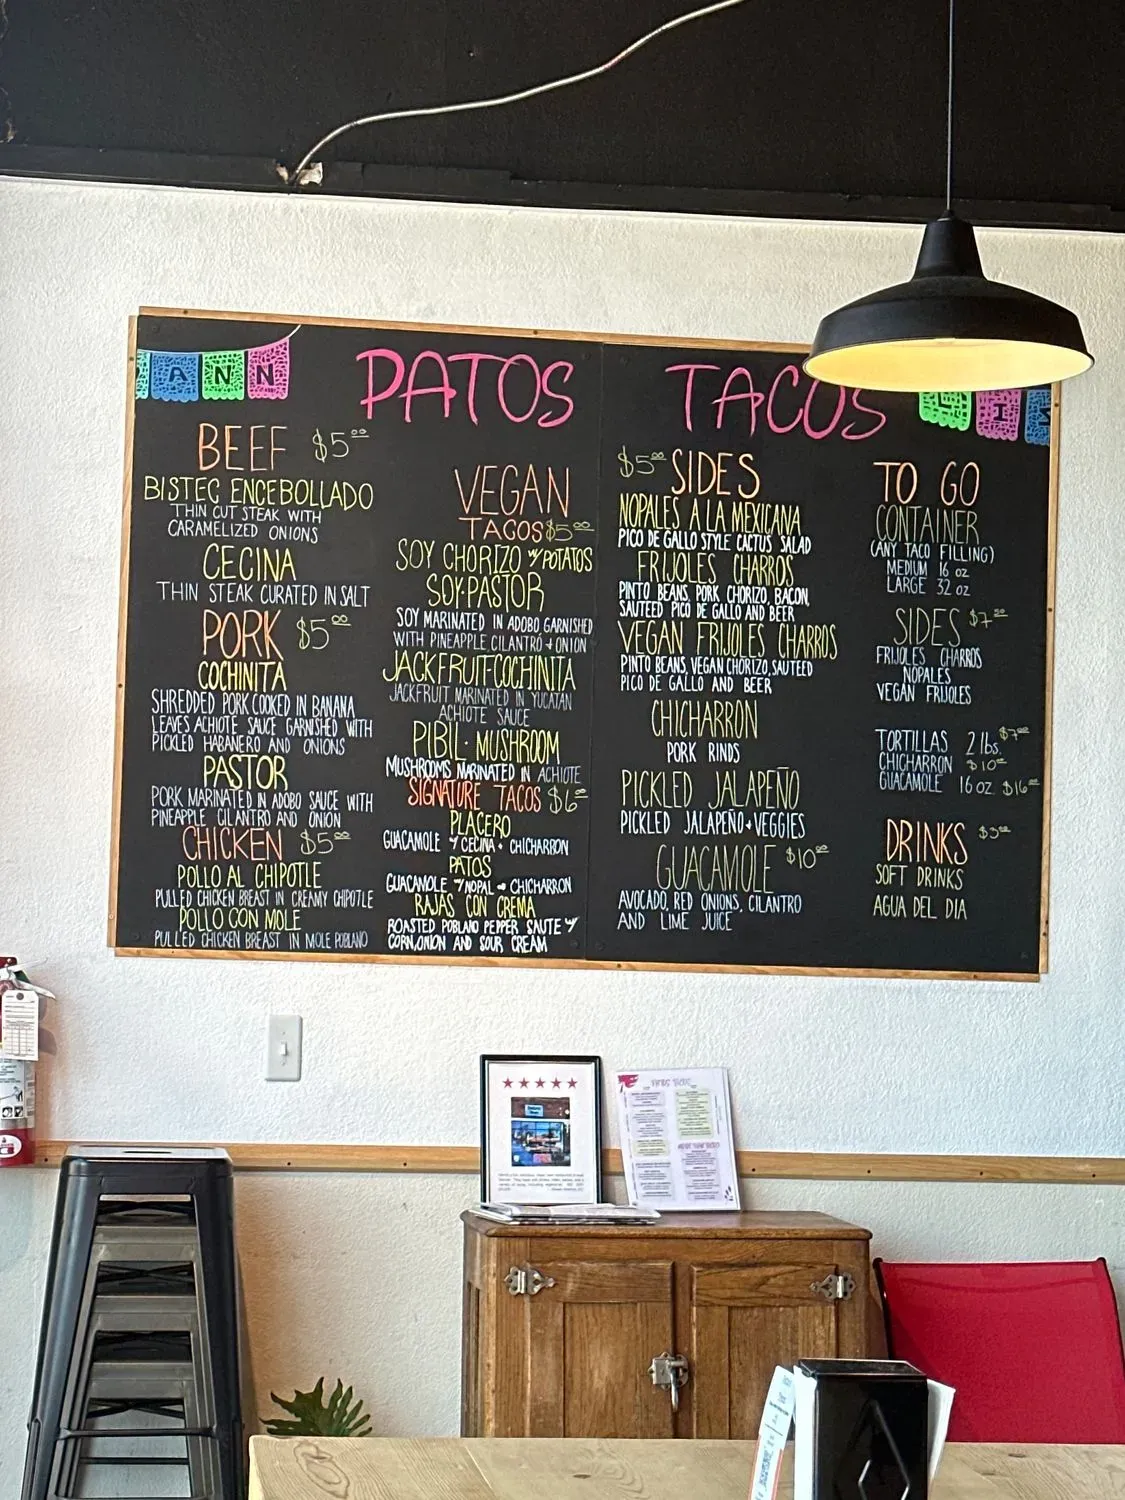 ANN
PATOS TACOS
BEEF $5.00
BISTEC ENCEBOLLADO
THIN CUT STEAK WITH
CARAMELIZED ONIONS
CECINA
THIN STEAK CURATED IN SALT
PORK $5.00
COCHINITA
SHREDDED PORK COOKED IN BANANA
LEAVES ACHIOTE SAUCE GARNISHED WITH
PICKLED HABANERO AND ONIONS
PASTOR
PORK MARINATED IN ADOBO SAUCE WITH
PINEAPPLE CILANTRO AND ONION
CHICKEN $5.00
POLLO AL CHIPOTLE
PULLED CHICKEN BREAST IN CREAMY CHIPOTLE
POLLO CON MOLE
PULLED CHICKEN BREAST IN MOLE POBLANO
VEGAN
TACOS $5.00
SOY CHORIZO W/POTATOS
SOY·PASTOR
SOY MARINATED IN ADOBO GARNISHED
WITH PINEAPPLE, CILANTRO + ONION
JACKFRUIT-COCHINITA
JACKFRUIT MARINATED IN YUCATAN
ACHIOTE SAUCE
PIBIL·MUSHROOM
MUSHROOMS MARINATED IN ACHIOTE
SIGNATURE TACOS $6.00
PLACERO
GUACAMOLE W/ CECINA + CHICHARRON
PATOS
GUACAMOLE W/NOPAL + CHICHARRON
RAJAS CON CREMA
ROASTED POBLANO PEPPER SAUTE W/
CORN,ONION AND SOUR CREAM
$5.00 SIDES
NOPALES A LA MEXICANA
PICO DE GALLO STYLE CACTUS SALAD
FRIJOLES CHARROS
PINTO BEANS, PORK CHORIZO, BACON,
SAUTEED PICO DE GALLO AND BEER
VEGAN FRIJOLES CHARROS
PINTO BEANS, VEGAN CHORIZO, SAUTEED
PICO DE GALLO AND BEER
CHICHARRON
PORK RINDS
PICKLED JALAPEÑO
PICKLED JALAPEÑO + VEGGIES
GUACAMOLE $10.00
AVOCADO, RED ONIONS, CILANTRO
AND LIME JUICE
TO GO
CONTAINER
(ANY TACO FILLING)
MEDIUM 16 oz
LARGE 32 oz
SIDES
FRIJOLES CHARROS
NOPALES
VEGAN FRIJOLES
TORTILLAS 2 lbs.
CHICHARRON $10.00
GUACAMOLE 16 oz $16.00
DRINKS
SOFT DRINKS
AGUA DEL DIA